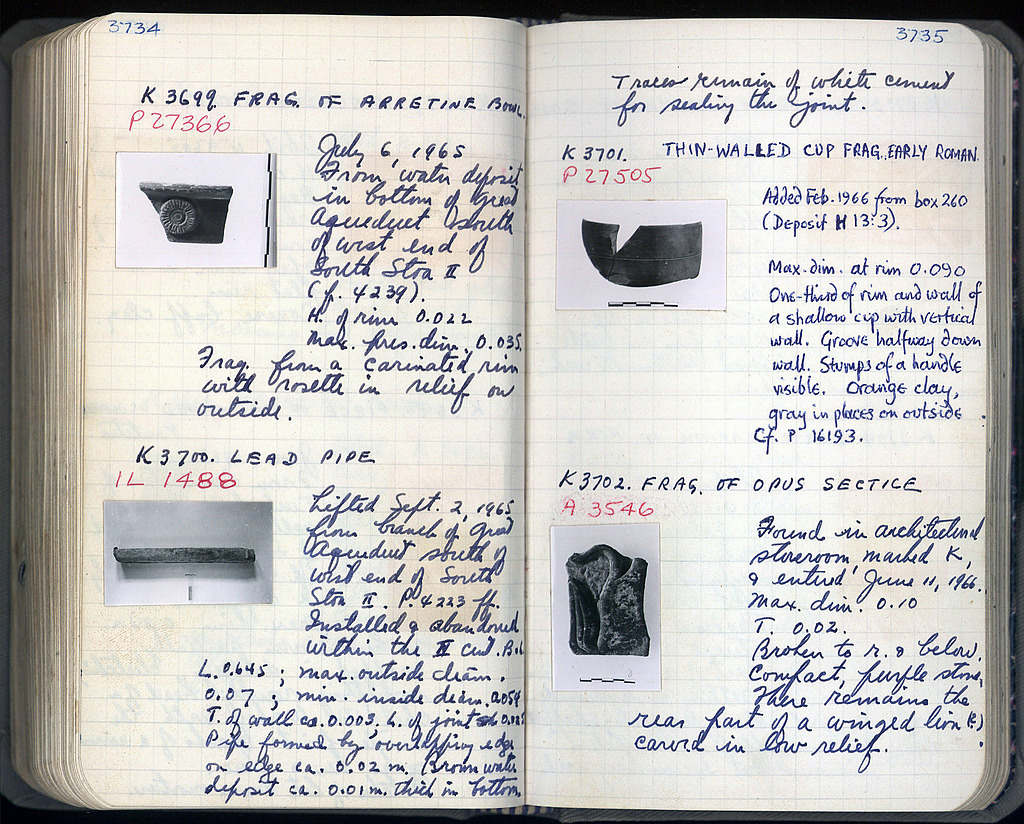 3734
K 3699. FRAG. OF ARRETINE BOWL.
P 27366
July 6, 1965
From water deposit
in bottom of Great
Aqueduct south
of west end of
South Stoa II
(p. 4239).
H. of rim 0.022
Max. pres. dim. 0.035.
Frag. from a carinated rim
with rosette in relief on
outside.
K 3700. LEAD PIPE
IL 1488
Lifted Sept. 2, 1965
from branch of Great
Aqueduct south of
west end of South
Stoa II. P. 4223 ff.
Installed & abandoned
within the II cent. B.C.
L. 0.645; max. outside diam.
0.07; min. inside diam. 0.054
T. of wall ca. 0.003, L. of joint
Pipe formed by overlapping edge
on edge ca. 0.02 m. Brown water
deposit ca. 0.01 m. thick in bottom.
3735
Traces remain of white cement
for sealing the joint.
K 3701. THIN-WALLED CUP FRAG., EARLY ROMAN.
P 27505
Added Feb. 1966 from box 260
(Deposit H 13:3).
Max. dim. at rim 0.090
One-third of rim and wall of
a shallow cup with vertical
wall. Groove halfway down
wall. Stumps of a handle
visible. Orange clay,
gray in places on outside.
Cf. P 16193.
K 3702. FRAG. OF OPUS SECTICE
A 3546
Found in architectural
storeroom, marked K,
& entered June 11, 1966.
Max. dim. 0.10
T. 0.02.
Broken to r. & below.
Compact, purple stone,
There remains the
rear part of a winged lion (?)
carved in low relief.